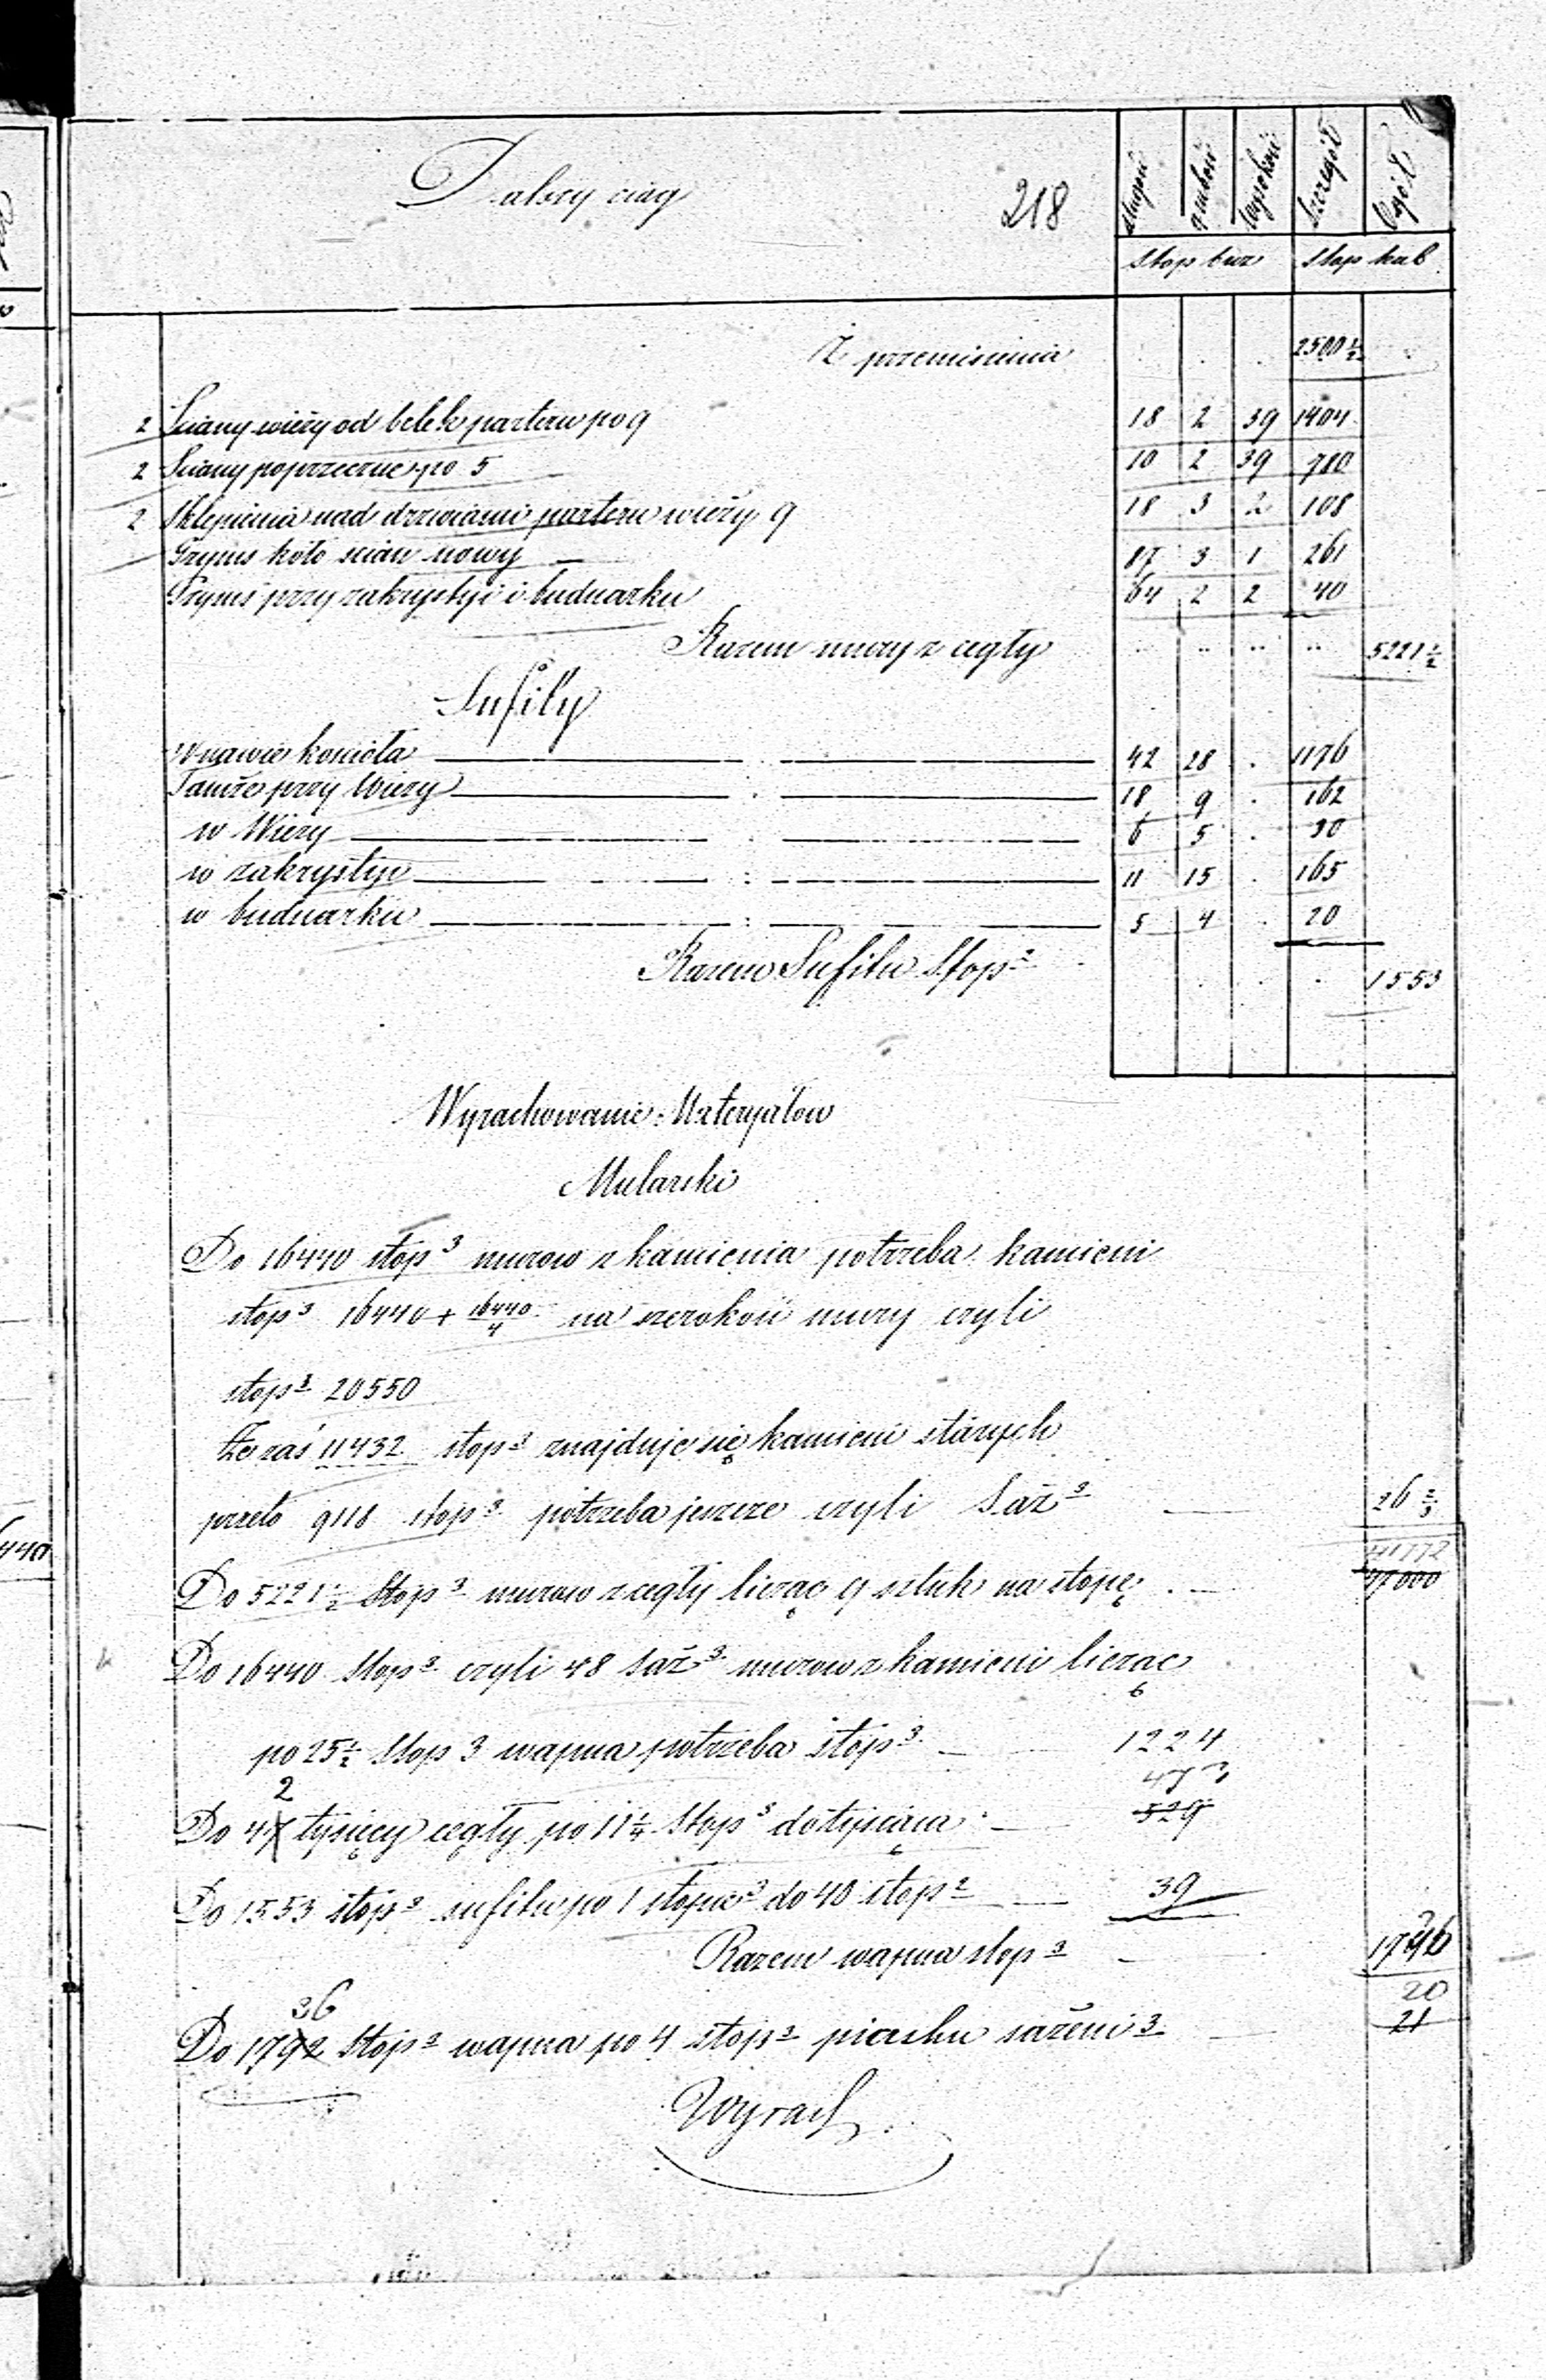 Dalszy ciąg 218 długość grubość wysokość szczegół Ogół
Stop bież Stop kub
Z przeniesienia . . . 2500 1/2
2 Sciany wieży od belek parteru po 9 18 2 39 1404
2 Sciany poprzeczne po 5 10 2 39 780
2 Sklepienia nad drzwiami parteru wieży 9 18 3 2 108
Gzyms koło scian nowy 87 3 1 261
Gzyms przy zakrystyi i 64 2 2 40
Razem mury z cegły 5221 1/2
Sufity
w nawie koscioła 42 28 . 1176
Tamże przy Wieży 18 9 . 162
w Wieży 6 5 . 30
w zakrystyi 11 15 . 165
w 5 4 . 20
Razem Sufitu Stop 2 1553
Wyrachowanie Materyałow
Mularski
Do 16440 stop 3 murow z kamienia potrzeba kamieni
stop 3 16440 + 16440/4 na szerokość mury czyli
stop 3 20550
że zaś 11432 stop 3 znajduje się kamieni starych
przeto 9118 stop 3 potrzeba jeszcze czyli Saż 3 26 2/3
41772
Do 5221 1/2 Stop 3 murow z cegły licząc 9 sztuk na stopę 47000
Do 16440 Stop 3 czyli 48 saż 3 murow z kamieni licząc
po 25 1/2 Stop 3 wapna potrzeba stop 3 1224
2 473
Do 47 tysięcy cegły po 11 1/4 Stop 3 do tysiąca 529
Do 1553 stop 2 sufitu po 1 stopie 3 do 40 stop 2 39
Razem wapna stop 3 1736
36 20
Do 1792 Stop 3 wapna po 4 stop 3 piasku sażeni 3 21
Wyrach